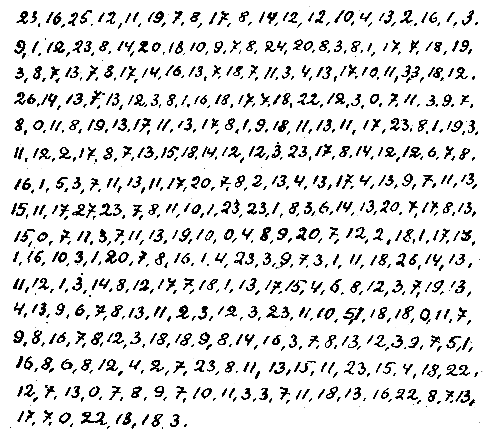 23,16,25,12,11,19,7,8,17,8,14,12,12,10,4,13,2,16,1,3.
9,1,12,23,8,14,20,18,10,9,7,8,24,20,8,3,8,1,17,7,18,19,
3,8,7,13,7,8,17,14,16,13,7,18,7,11,3,4,13,17,10,11,33,18,12.
26,14,13,7,13,12,3,8,1,16,18,17,7,18,22,12,3,0,7,11.3,9,7,
8,0,11,8,19,13,17,11,13,17,8,1,9,18,11,13,11,17,23,8,1,19,3,
11,12,2,17,8,7,13,15,18,14,12,12,3,23,17,8,14,12,12,6,7,8,
16,1,5,3,7,11,13,11,17,20,7,8,2,13,4,13,17,4,13,9,7,11,13,
15,11,17,27,23,7,8,11,10,1,23,23,1,8,3,6,14,13,20,7,17,8,13,
15,0,7,11,3,7,11,13,19,10,0,4,8,9,20,7,12,2,18,1,17,18,
1,16,10,3,1,20,7,8,16,1,4,23,3,9,7,3,1,11,18,26,14,13,
11,12,1,3,14,8,12,17,7,18,1,13,17,15,4,6,8,12,3,7,19,13,
4,13,9,6,7,8,13,11,2,3,12,3,23,11,10,51,18,18,0,11,7,
9,8,16,7,8,12,3,18,18,9,8,14,16,3,7,8,13,12,3,9,7,5,1,
16,8,6,8,12,4,2,7,23,8,11,13,15,11,23,15,4,18,22,
12,7,13,0,7,8,9,7,10,11,3,3,7,11,18,13,16,22,8,7,13,
17,7,0,22,18,18,3.